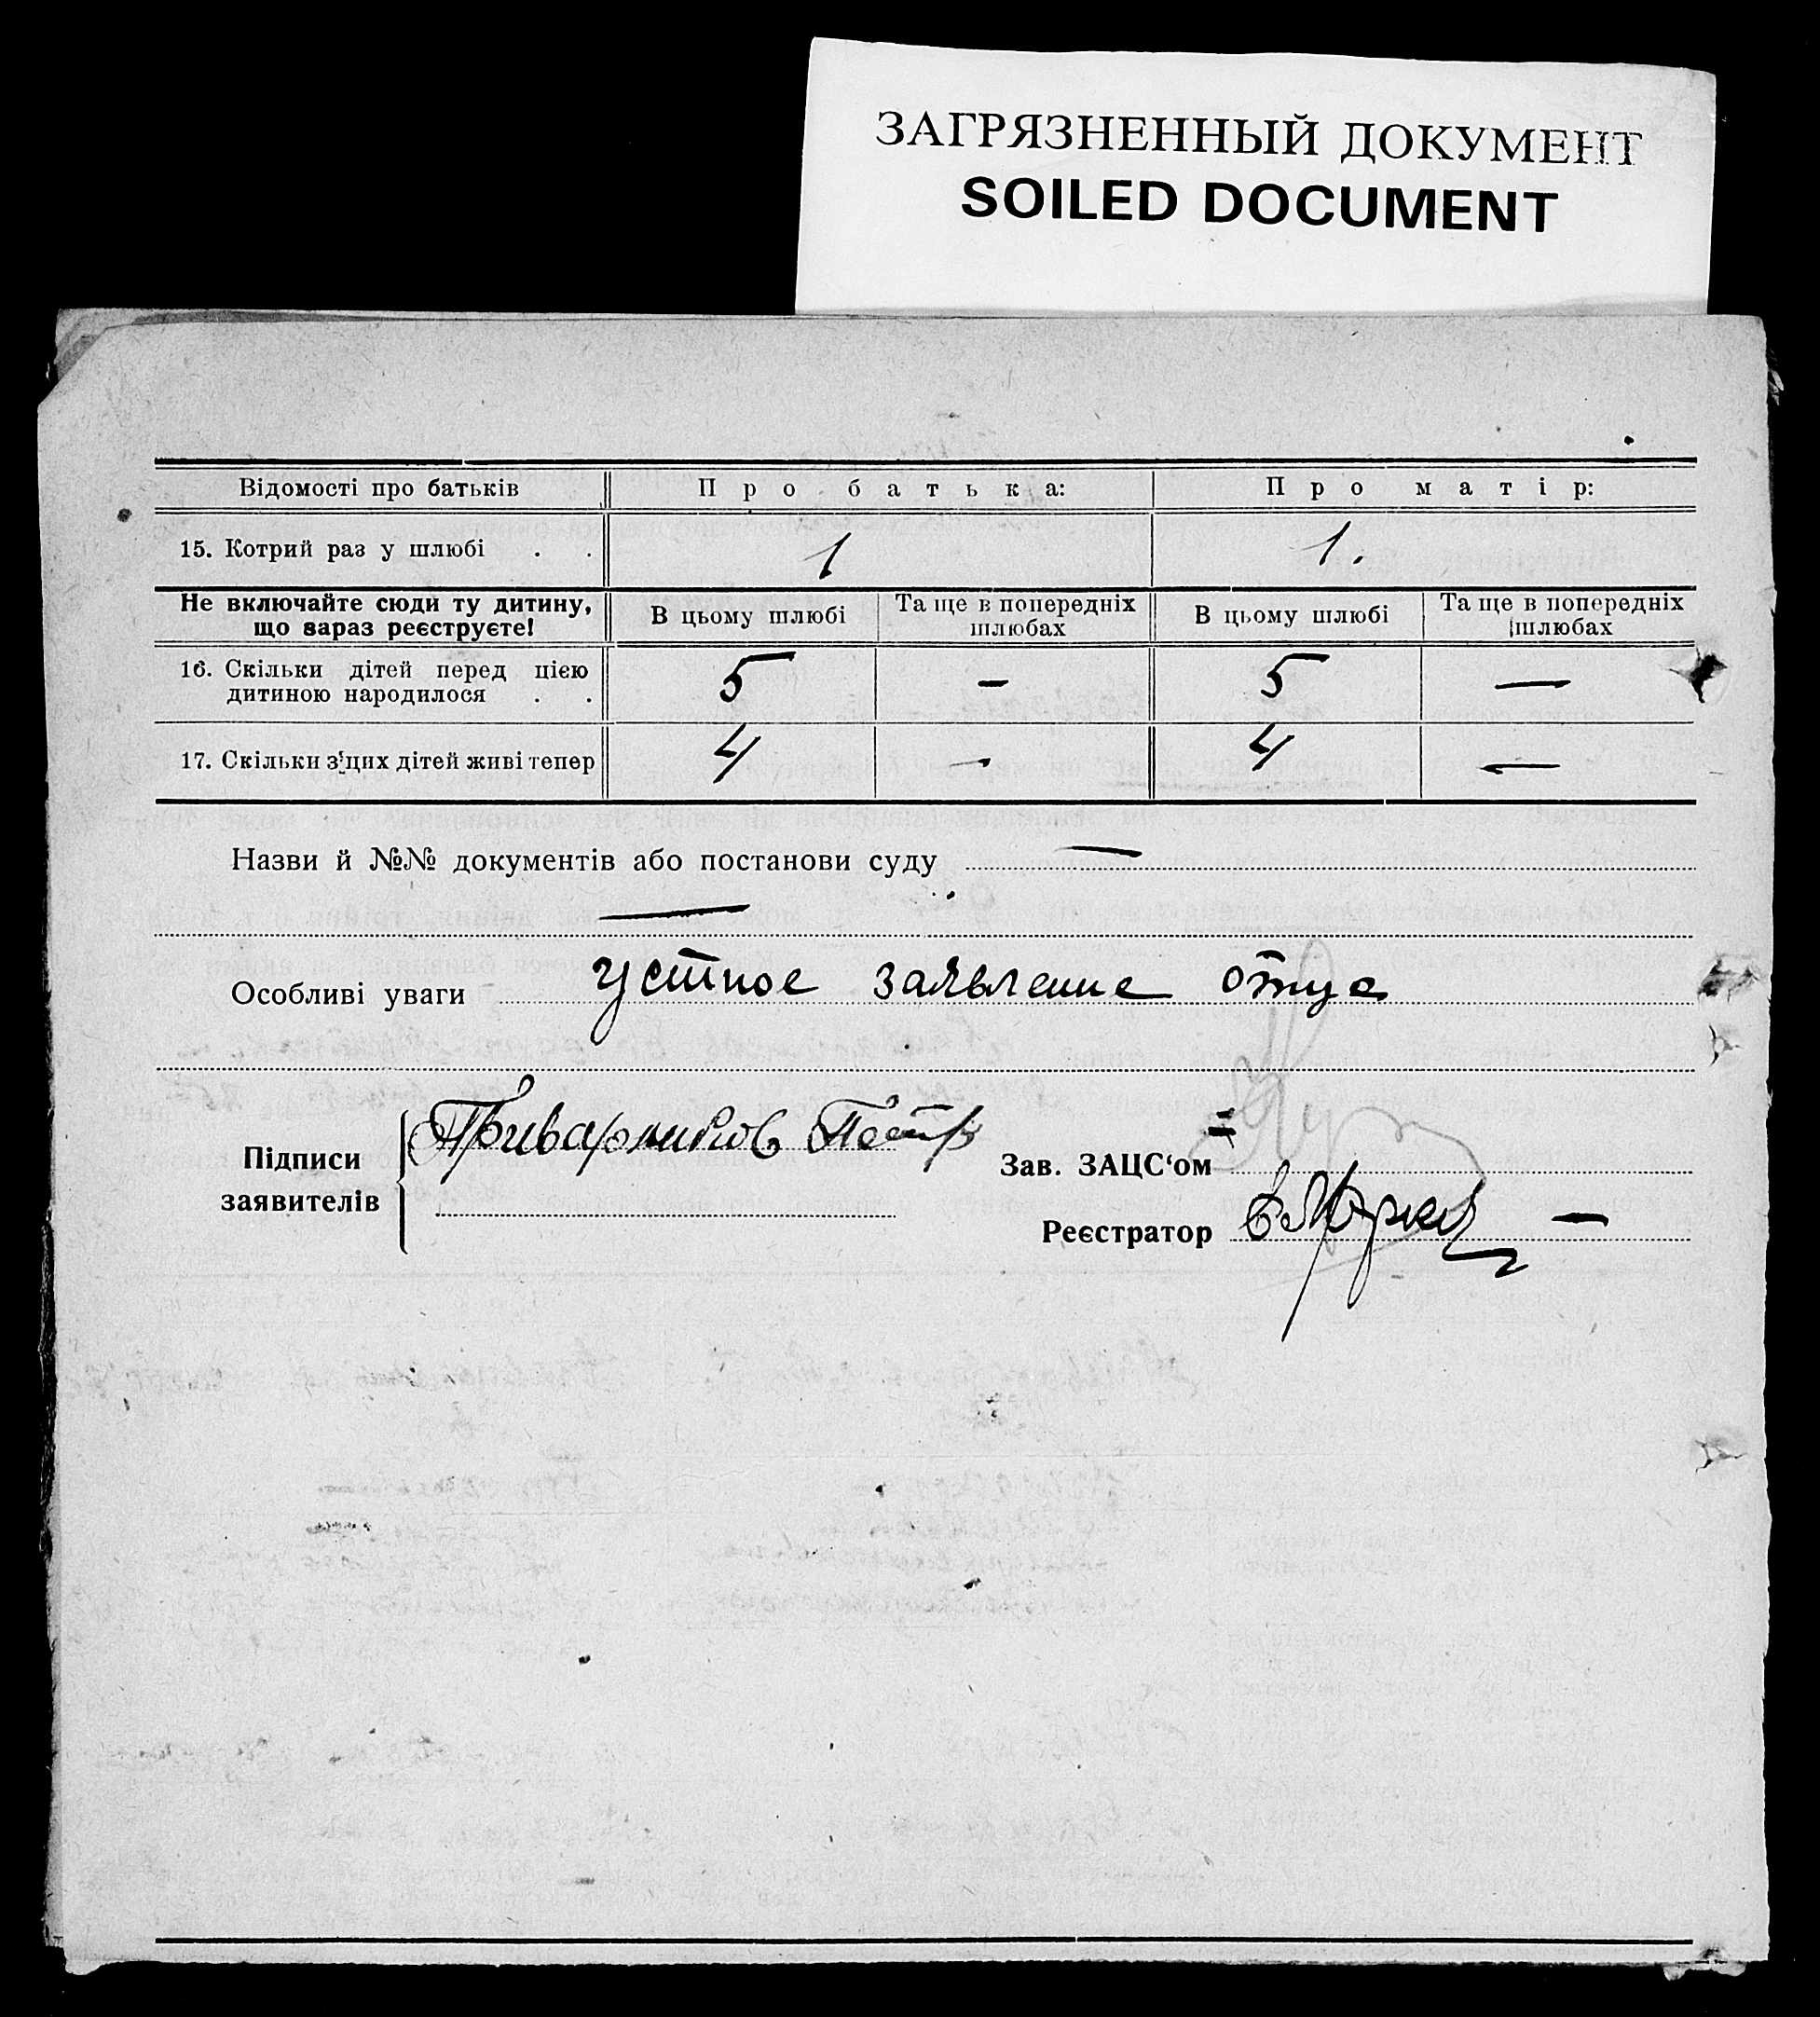 ЗАГРЯЗНЕННЫЙ ДОКУМЕНТ
SOILED DOCUMENT
Відомості про батьків Про батька: Про матір:
15. Котрий раз у шлюбі . . 1 1.
Не включайте сюди ту дитину, що зараз реєструєте! В цьому шлюбі Та ще в попередніх шлюбах В цьому шлюбі Та ще в попередніх шлюбах
16. Скільки дітей перед цією дитиною народилося . . 5 — 5 —
17. Скільки з цих дітей живі тепер 4 — 4 —
Назви й №№ документів або постанови суду —
—
Особливі уваги устное заявление отца
Підписи заявителів Приварников Петр
Зав. ЗАЦС‘ом
Реєстратор